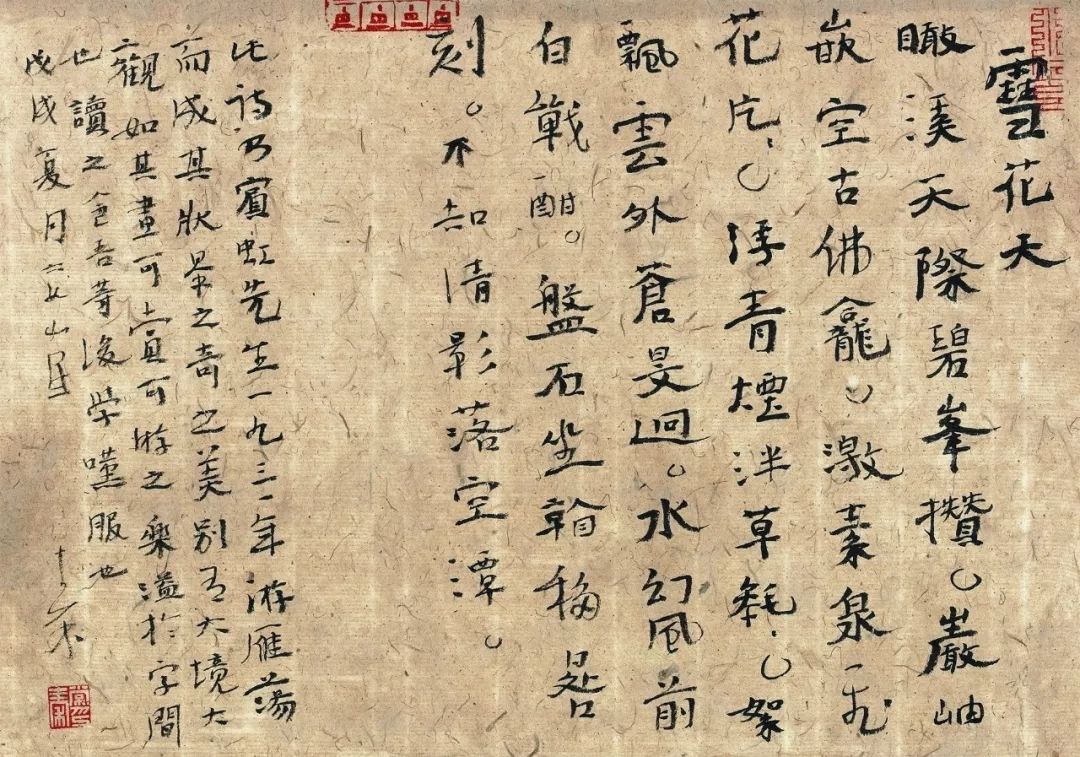 雪花天
瞰溪天際碧峯攢。巖岫
嵌空古佛龕。激素泉飛
花片。浮青煙泮草毵。絮
飄雲外蒼旻迥。水幻風前
白戰酣。盤石坐移晷
刻。不知清影落空潭。
此詩乃賓虹先生一九三一年游雁蕩
而成其狀景之奇之美別有大境大
觀如其畫可賞可游之樂溢於字間
也讀之令吾等後學嘆服也
戊戌夏月山居